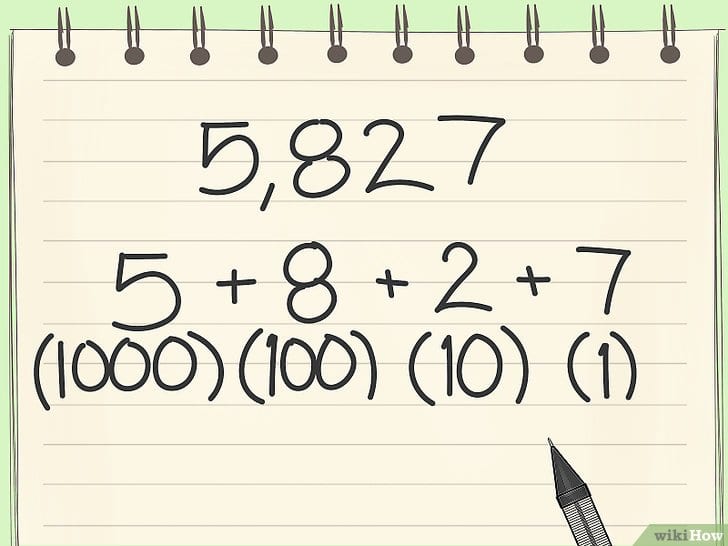 5,827
5 + 8 + 2 + 7
(1000) (100) (10) (1)
wikiHow